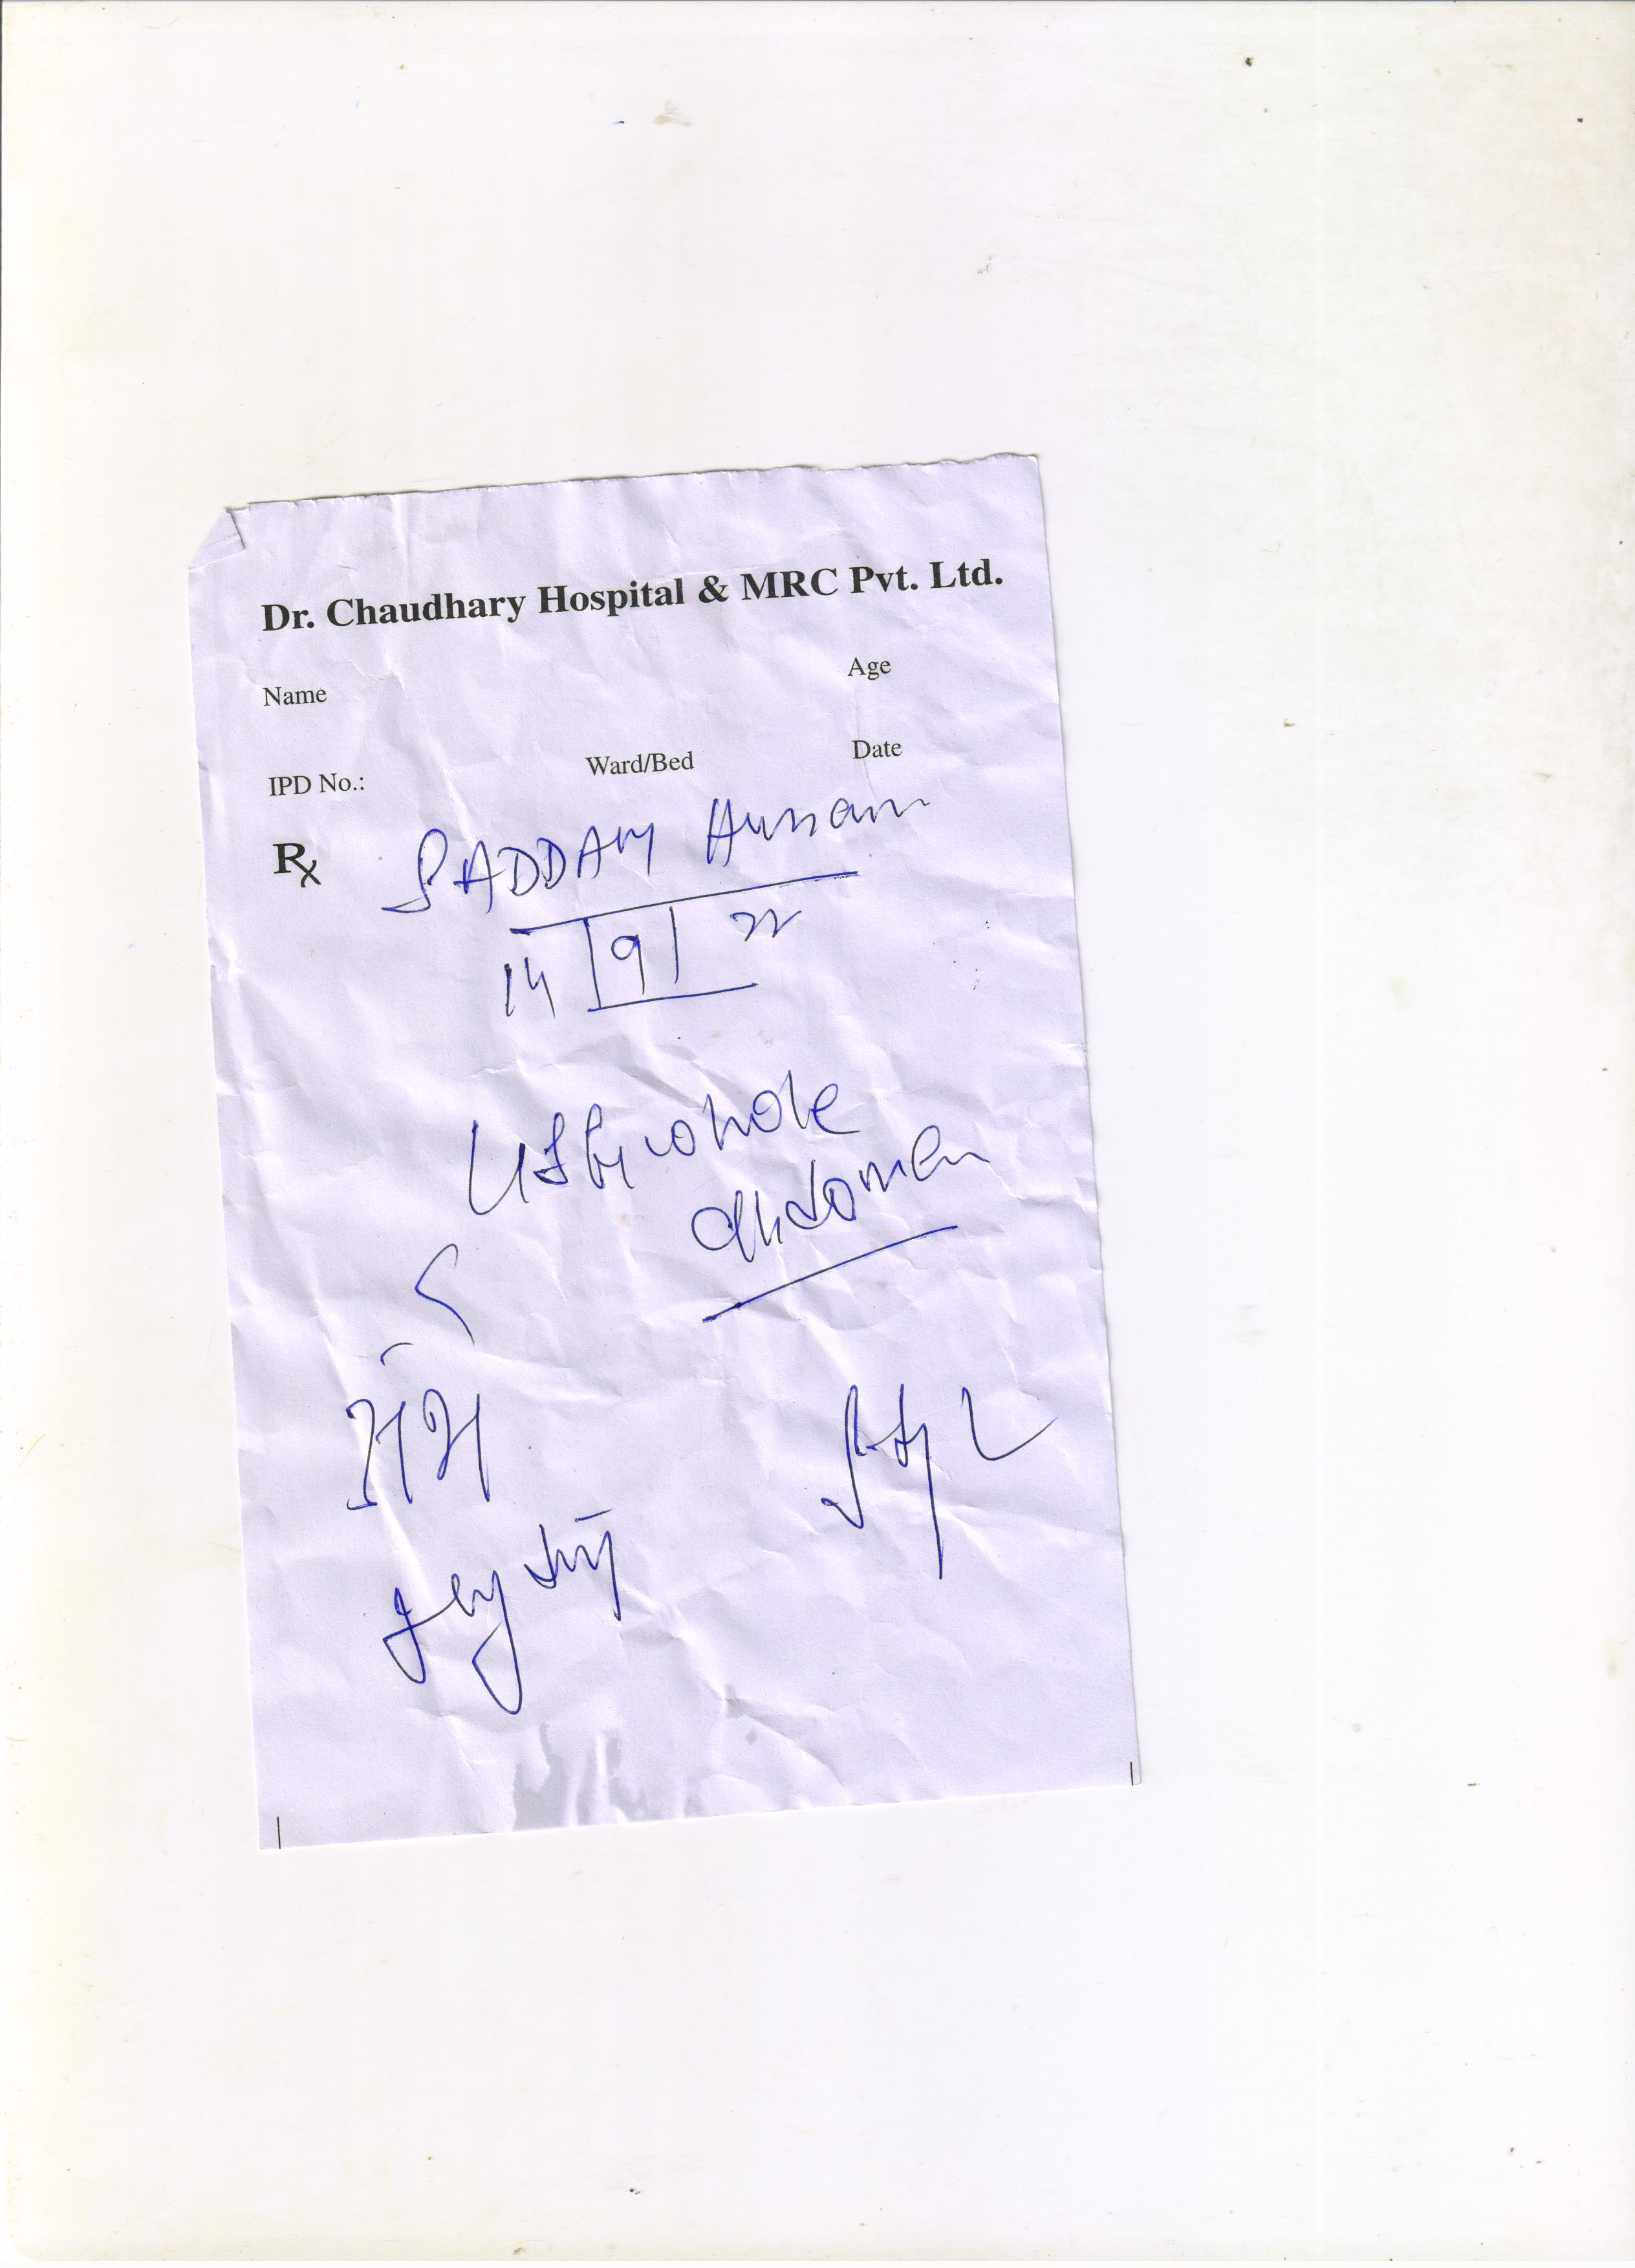 Dr. Chaudhary Hospital & MRC Pvt. Ltd.
Name Age
IPD No.: Ward/Bed Date
Rx SADDAM Hussain
14/9/22
USG whole
abdomen